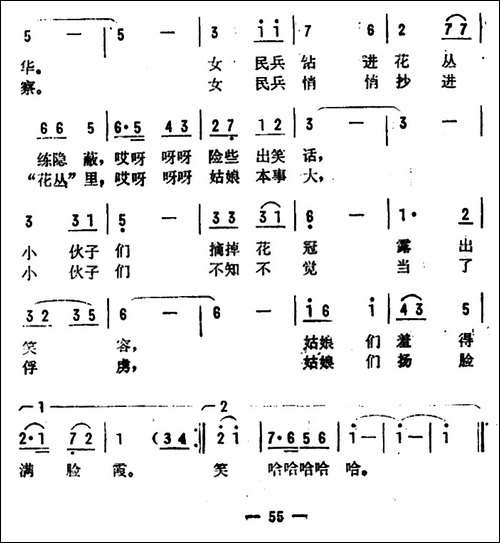 5 — | 5 — | 3 i i | 7 6 | 2 7 7 |
华。 女 民兵 钻 进 花 丛
察。 女 民兵 悄 悄 抄 进
6 6 5 | 6·5 4 3 | 2 7· 1 2 | 3 — | 3 — |
练隐 蔽，哎呀 呀呀 险些 出笑 话，
“花丛”里，哎呀 呀呀 姑娘 本事 大，
3 3 1 | 5 — | 3 3 3 1 | 6 — | 1· 2 |
小 伙子 们 摘掉 花 冠 露 出
小 伙子 们 不知 不 觉 当 了
3 2 3 5 | 6 — | 6 — | i 6 i | 4 3 5 |
笑 容， 姑娘 们 羞 得
俘 虏， 姑娘 们 扬 脸
1 2
2·1 7 2 | 1 (3 4 :‖ 2 i | 7·6 5 6 | i — | i — | i ‖
满 脸 霞。 笑 哈哈哈哈 哈。
— 55 —